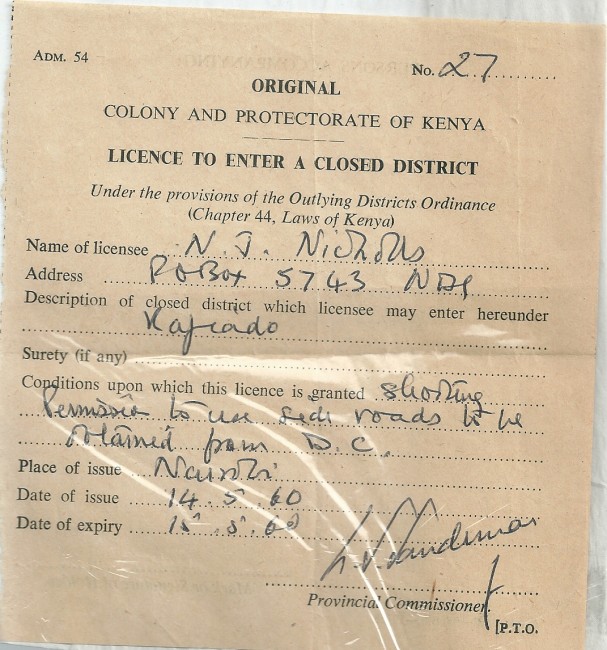 ADM. 54
No. 27
ORIGINAL
COLONY AND PROTECTORATE OF KENYA
LICENCE TO ENTER A CLOSED DISTRICT
Under the provisions of the Outlying Districts Ordinance
(Chapter 44, Laws of Kenya)
Name of licensee N. J. Nicholls
Address P O Box 5743 NBI
Description of closed district which licensee may enter hereunder
Kajiado
Surety (if any)
Conditions upon which this licence is granted shooting
Permission to use side roads to be
obtained from D.C.
Place of issue Nairobi
Date of issue 14.5.60
Date of expiry 15.5.60
Provincial Commissioner.
[P.T.O.